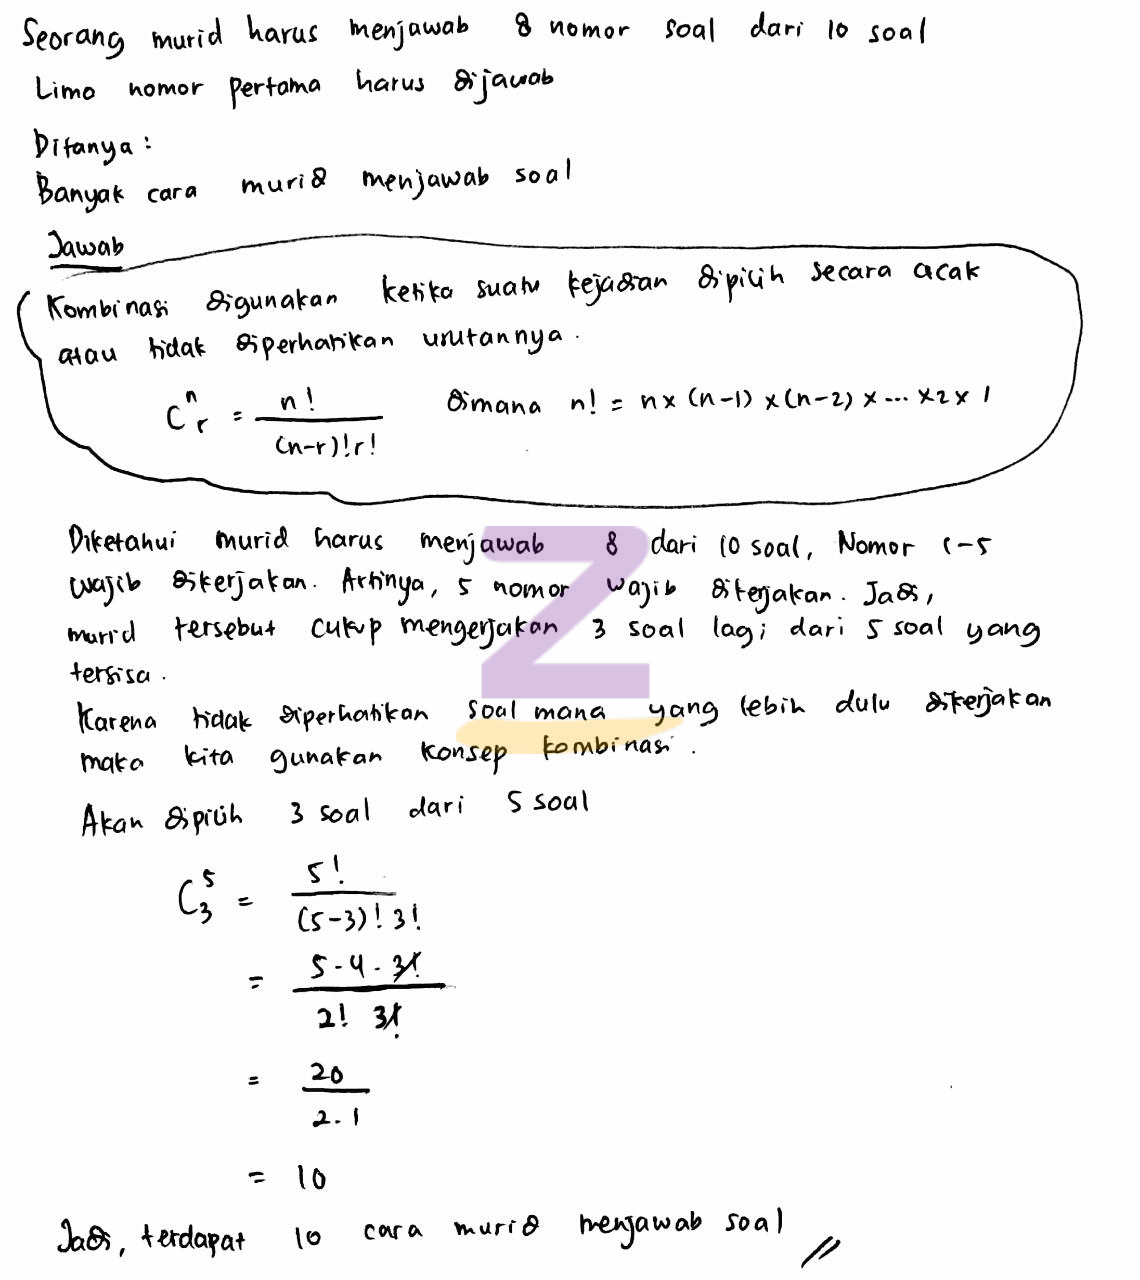 Seorang murid harus menjawab 8 nomor soal dari 10 soal
Lima nomor pertama harus dijawab
Ditanya :
Banyak cara murid menjawab soal
Jawab
Kombinasi digunakan ketika suatu kejadian dipilih secara acak
atau tidak diperhatikan urutannya.
C^n_r = n! / (n-r)!r!   dimana n! = n x (n-1) x (n-2) x ... x 2 x 1
Diketahui murid harus menjawab 8 dari 10 soal, Nomor 1-5
wajib dikerjakan. Artinya, 5 nomor wajib dikerjakan. Jadi,
murid tersebut cukup mengerjakan 3 soal lagi dari 5 soal yang
tersisa.
Karena tidak diperhatikan soal mana yang lebih dulu dikerjakan
maka kita gunakan konsep kombinasi.
Akan dipilih 3 soal dari 5 soal
C^5_3 = 5! / (5-3)! 3!
= 5 · 4 · 3! / 2! 3!
= 20 / 2 . 1
= 10
Jadi, terdapat 10 cara murid menjawab soal //
Z